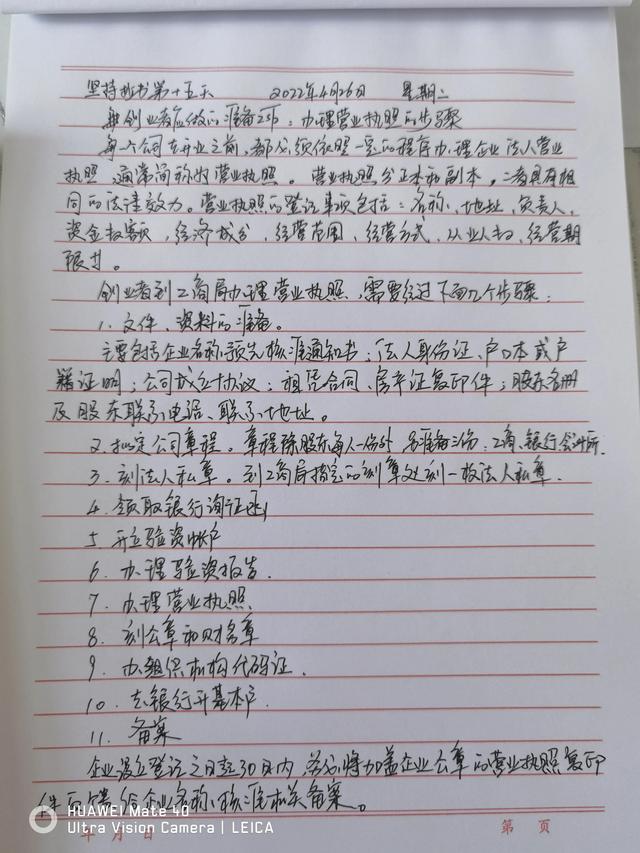 坚持抄书第十五天 2022年4月26日 星期二
创业者应做的准备工作：办理营业执照的步骤
每一个公司在开业之前，都必须依照一定的程序办理企业法人营业
执照，通常简称为营业执照。营业执照分正本和副本，二者具有相
同的法律效力。营业执照的登记事项包括：名称、地址、负责人、
资金数额，经济成分，经营范围，经营方式，从业人数，经营期
限等。
创业者到工商局办理营业执照，需要经过下面几个步骤：
1、文件、资料的准备。
主要包括企业名称预先核准通知书；法人身份证、户口本或户
籍证明；公司成立协议；租赁合同、房产证复印件；股东名册
及股东联系电话、联系地址。
2、拟定公司章程。章程除股东每人一份外，另准备三份：工商、银行、会计所.
3、刻法人私章。到工商局指定的刻章处刻一枚法人私章.
4、领取银行询证函
5、开立验资帐户
6、办理验资报告.
7、办理营业执照
8、刻公章和财务章
9、办组织机构代码证.
10、去银行开基本户.
11、备案
企业设立登记之日起30日内，务必将加盖企业公章的营业执照复印
件给企业名称核准机关备案。
年 月 日
第 页
HUAWEI Mate 40
Ultra Vision Camera | LEICA